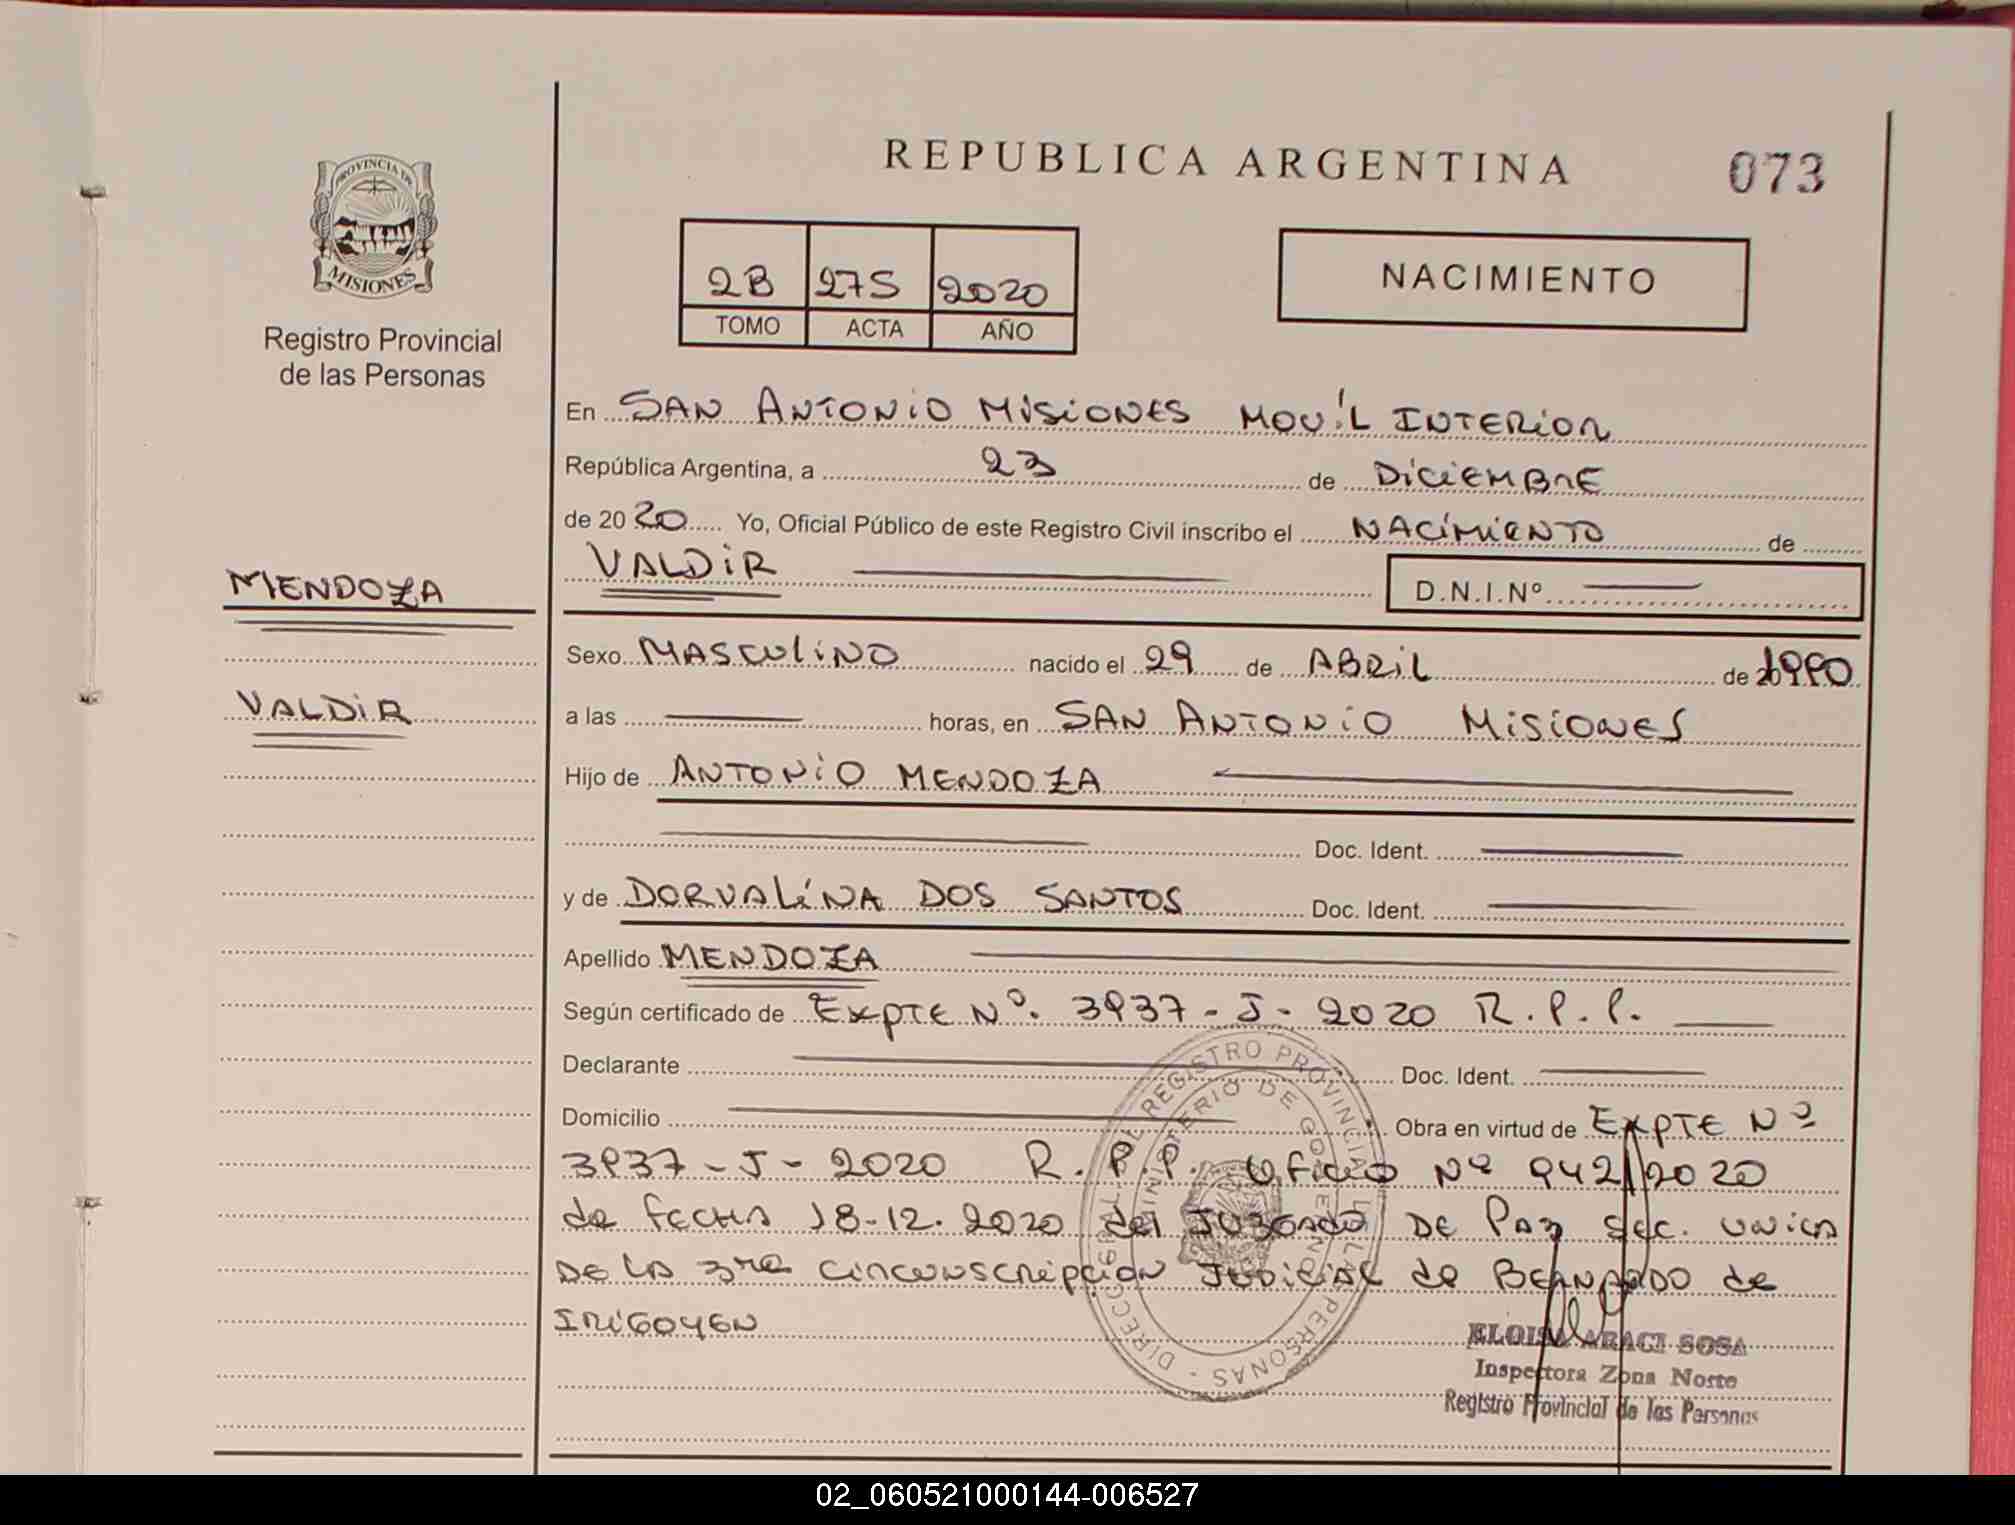 PROVINCIA DE
MISIONES
Registro Provincial
de las Personas
REPUBLICA ARGENTINA
073
2B 275 2020
TOMO ACTA AÑO
NACIMIENTO
En SAN ANTONIO MISIONES MOVIL INTERIOR
República Argentina, a 23 de DICIEMBRE
de 20 20 Yo, Oficial Público de este Registro Civil inscribo el NACIMIENTO de
VALDIR
D.N.I.Nº
MENDOZA
VALDIR
Sexo MASCULINO nacido el 29 de ABRIL de 1990
a las horas, en SAN ANTONIO MISIONES
Hijo de ANTONIO MENDOZA
Doc. Ident.
y de DORVALINA DOS SANTOS Doc. Ident.
Apellido MENDOZA
Según certificado de EXPTE Nº. 3937-J-2020 R.P.P.
Declarante Doc. Ident.
Domicilio Obra en virtud de EXPTE Nº
3937-J-2020 R.P.P. Oficio Nº 942/2020
de FECHA 18-12.2020 del JUZGADO DE PAZ SEC. UNICA
DE LA 3ra CIRCUNSCRIPCION JUDICIAL de BERNARDO de
IRIGOYEN
DIRECC. GRAL. DEL REGISTRO PROVINCIAL DE LAS PERSONAS -
MINISTERIO DE GOBIERNO
ELOISA ARACI SOSA
Inspectora Zona Norte
Registro Provincial de las Personas
02_060521000144-006527